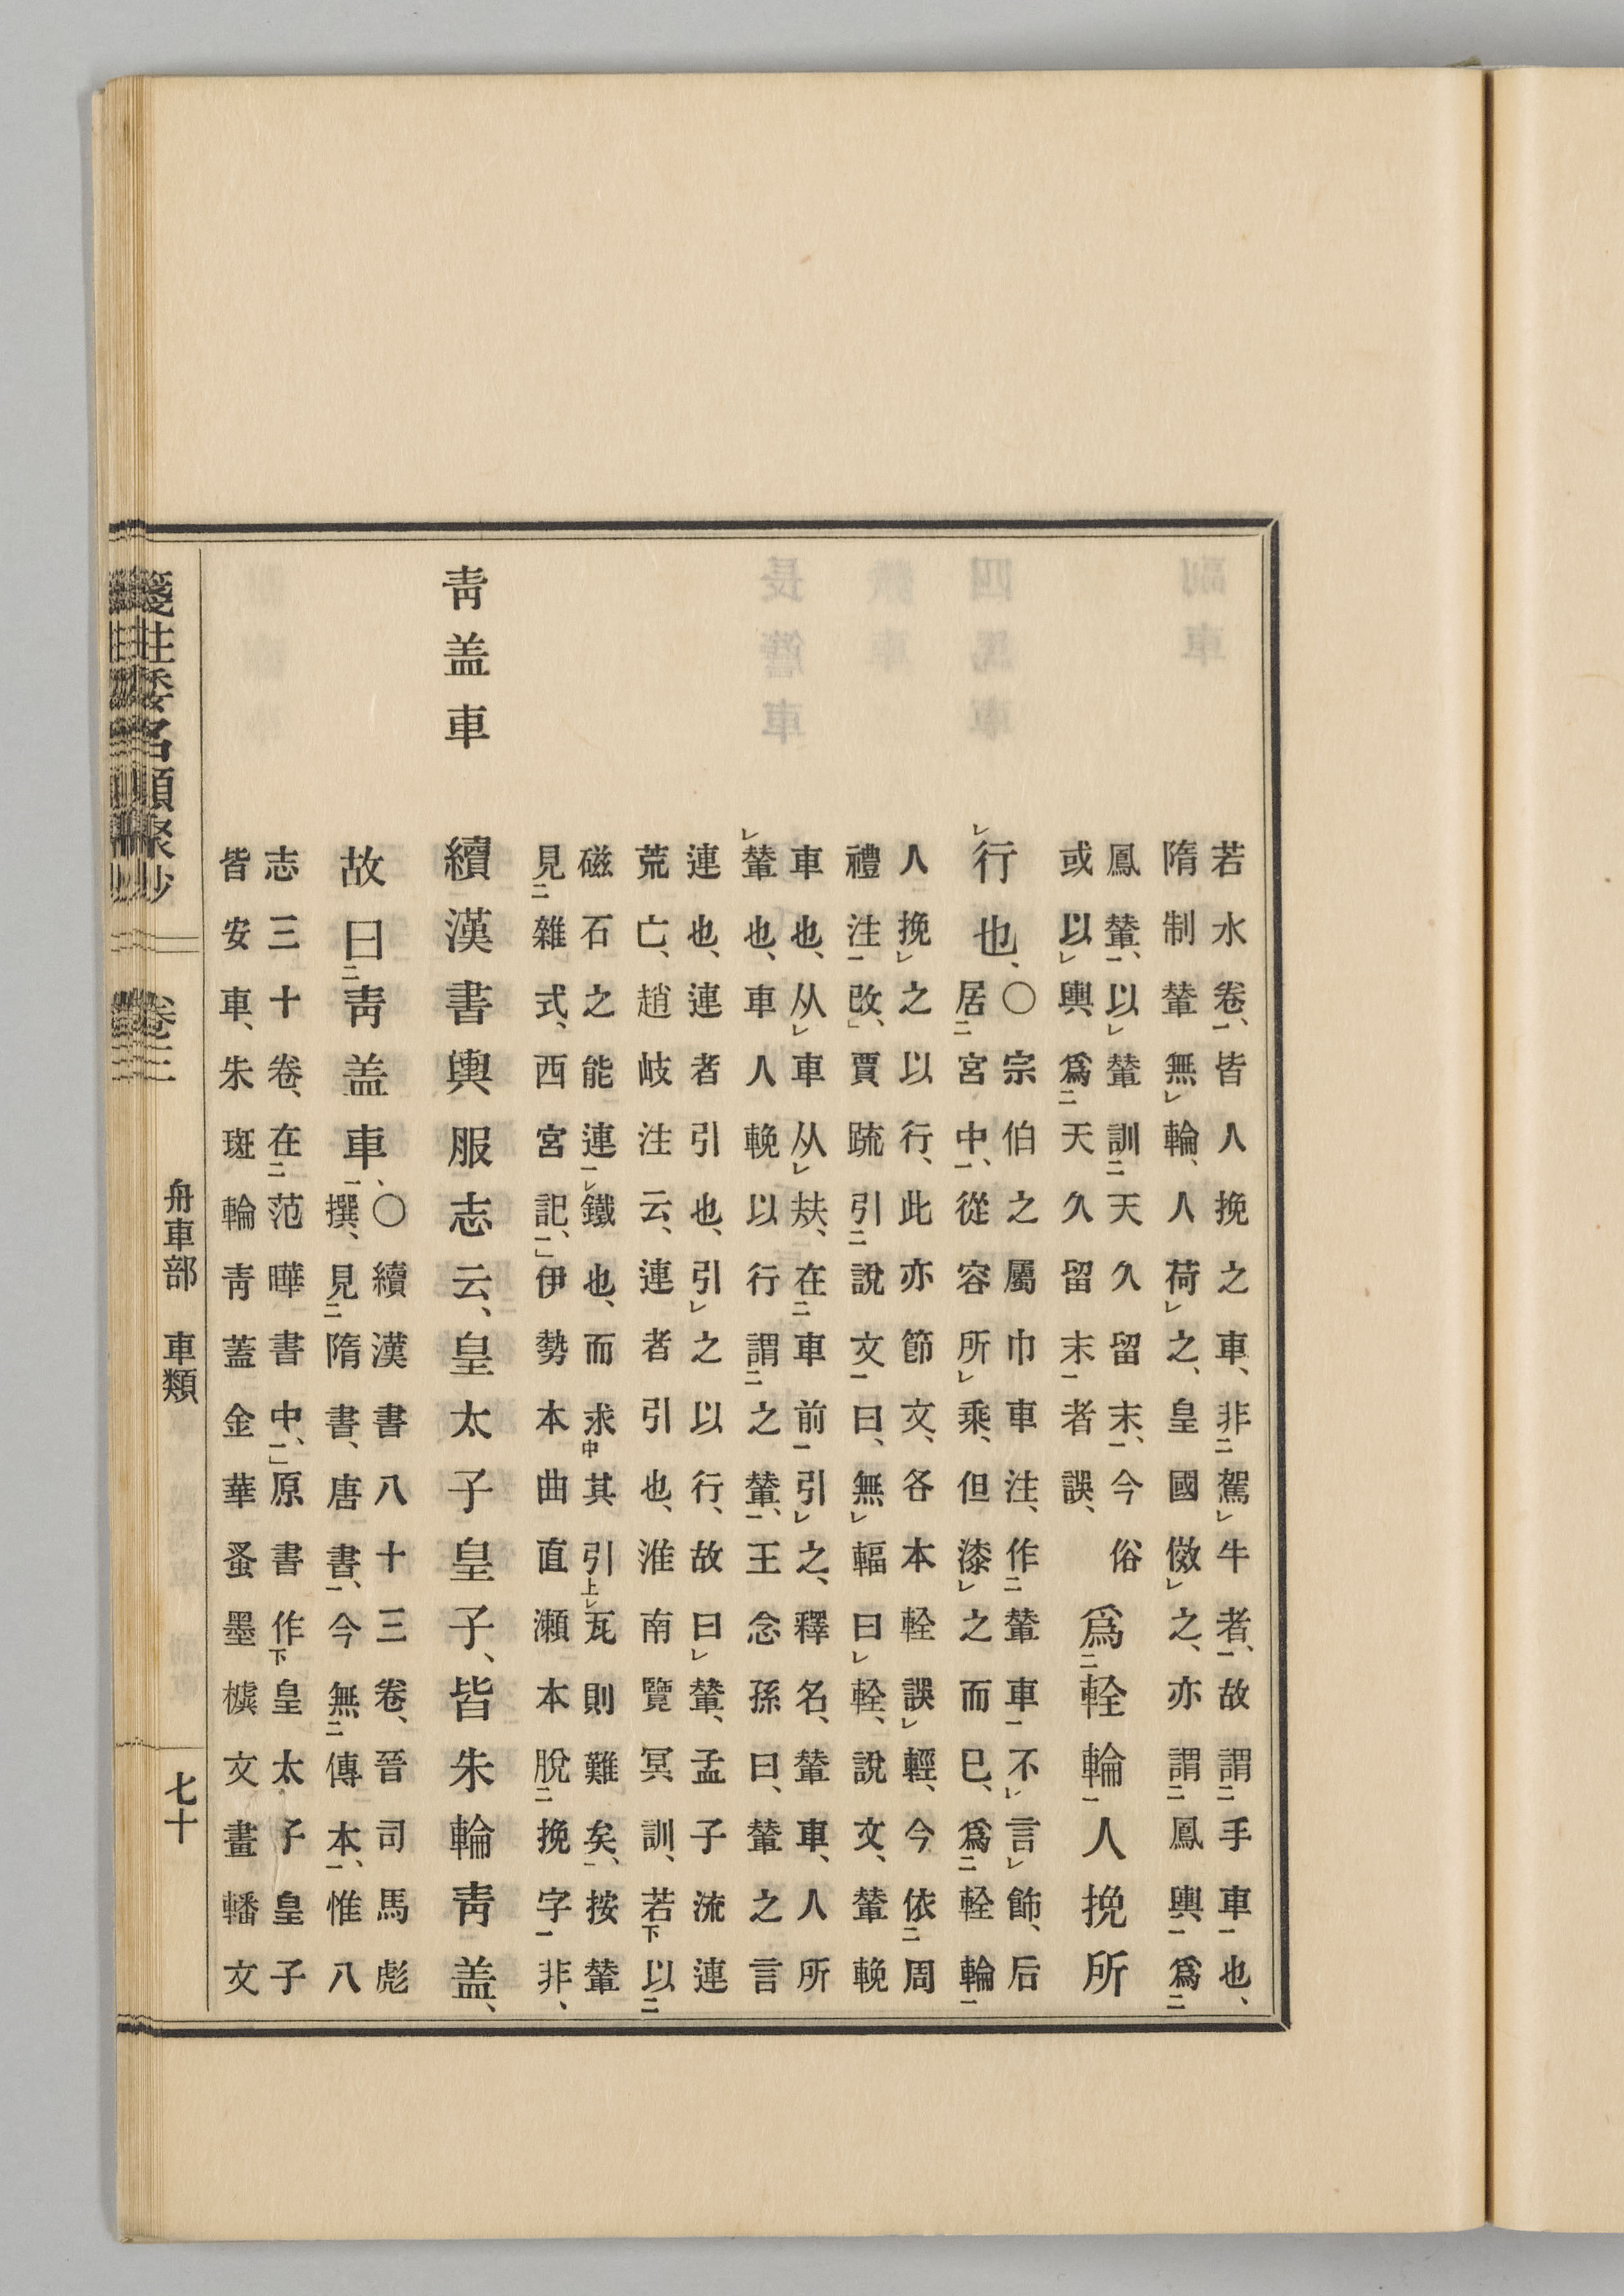 若水卷、皆人挽之車、非駕牛者、故謂手車也、
隋制輦無輪、人荷之、皇國倣之、亦謂鳳輿爲
鳳輦、以輦訓天久留末、今俗
或以輿爲天久留末者誤、
爲輇輪人挽所
行也、
〇宗伯之屬巾車注、作輦車不言飾、后
居宮中、從容所乘、但漆之而已、爲輇輪
人挽之以行、此亦節文、各本輇誤輕、今依周
禮注改、賈䟽引說文曰、無輻曰輇、說文、輦輓
車也、从車从㚘、在車前引之、釋名、輦車、人所
輦也、車人輓以行謂之輦、王念孫曰、輦之言
連也、連者引也、引之以行、故曰輦、孟子流連
荒亡、趙岐注云、連者引也、淮南覽冥訓、若以
磁石之能連鐵也、而求其引瓦則難矣、按輦
見雜式、西宮記、伊勢本曲直瀨本脫挽字非、
靑盖車
續漢書輿服志云、皇太子皇子、皆朱輪靑盖、
故曰靑盖車、
〇續漢書八十三卷、晉司馬彪
撰、見隋書、唐書、今無傳本、惟八
志三十卷、在范曄書中、原書作皇太子皇子
皆安車、朱斑輪靑蓋金華蚤墨㯫文畫轓文
箋注倭名類聚抄 卷三 舟車部 車類 七十